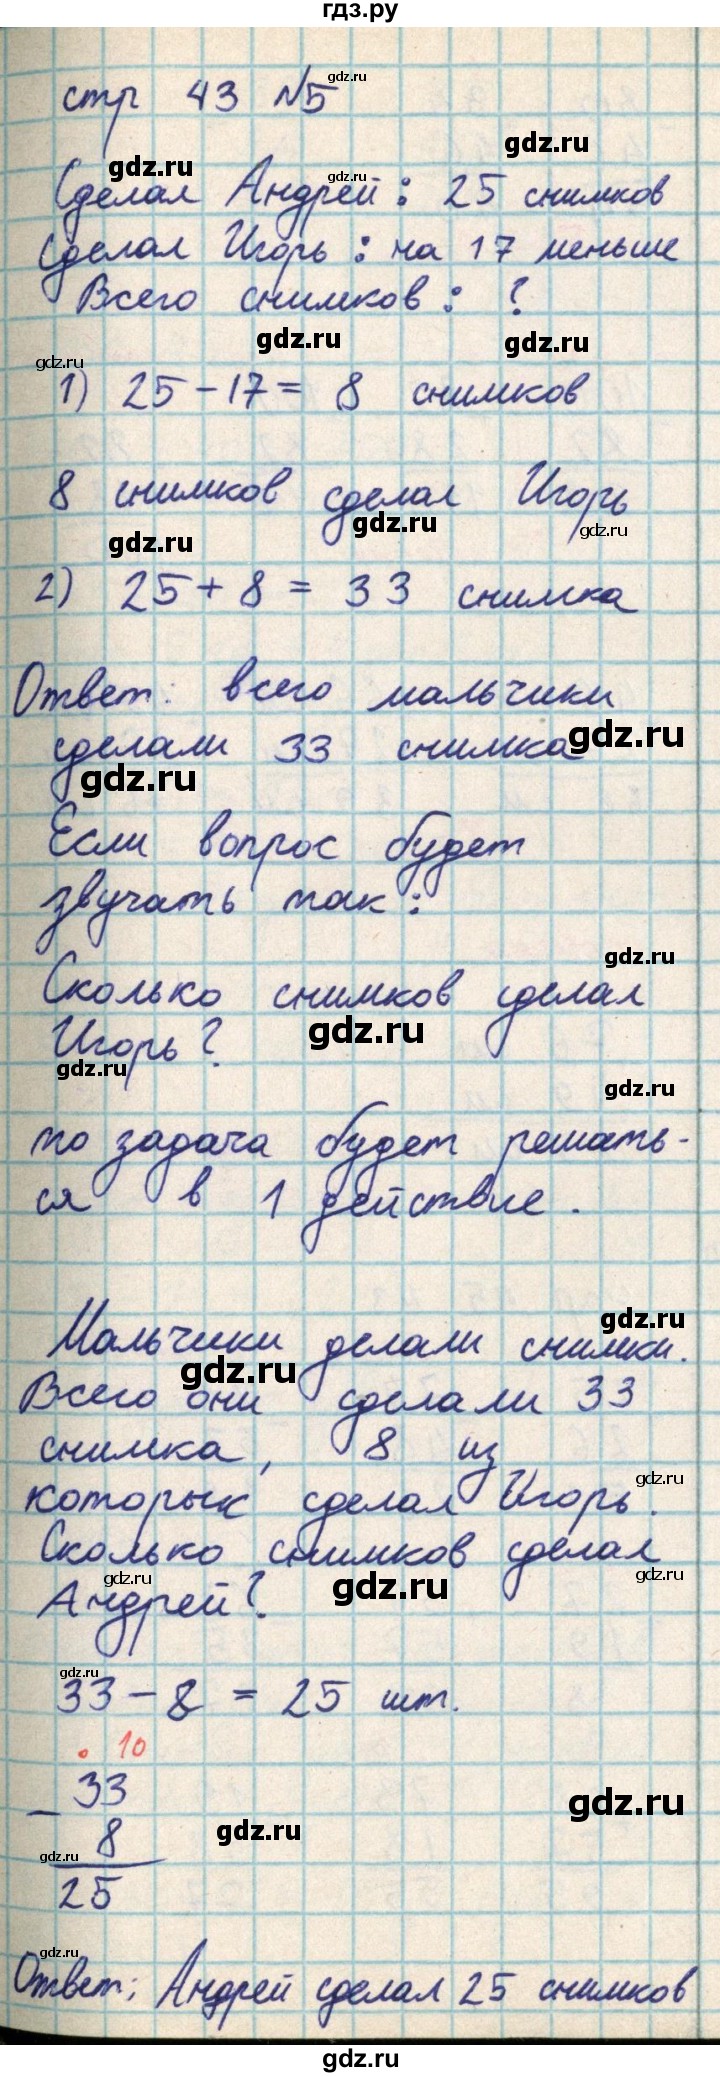 гдз.ру
gdz.ru
стр 43 №5
gdz.ru
gdz.ru
gdz.ru
Сделал Андрей: 25 снимков
Сделал Игорь: на 17 меньше
Всего снимков: ?
gdz.ru
gdz.ru
gdz.ru
1) 25-17= 8 снимков
8 снимков сделал Игорь
gdz.ru
gdz.ru
gdz.ru
2) 25+8= 33 снимка
Ответ: всего мальчики
сделали 33 снимка
gdz.ru
gdz.ru
Если вопрос будет
звучать так:
gdz.ru
Сколько снимков сделал
Игорь?
gdz.ru
gdz.ru
gdz.ru
то задача будет решать-
ся в 1 действие.
gdz.ru
Мальчики делали снимки.
gdz.ru
Всего они сделали 33
снимка, 8 из
gdz.ru
которых сделал Игорь.
Сколько снимков сделал
gdz.ru
gdz.ru
gdz.ru
Андрей?
gdz.ru
33-8 = 25 шт.
. 10
- 33
gdz.ru
8
gdz.ru
gdz.ru
25
gdz.ru
Ответ: Андрей сделал 25 снимков
gdz.ru